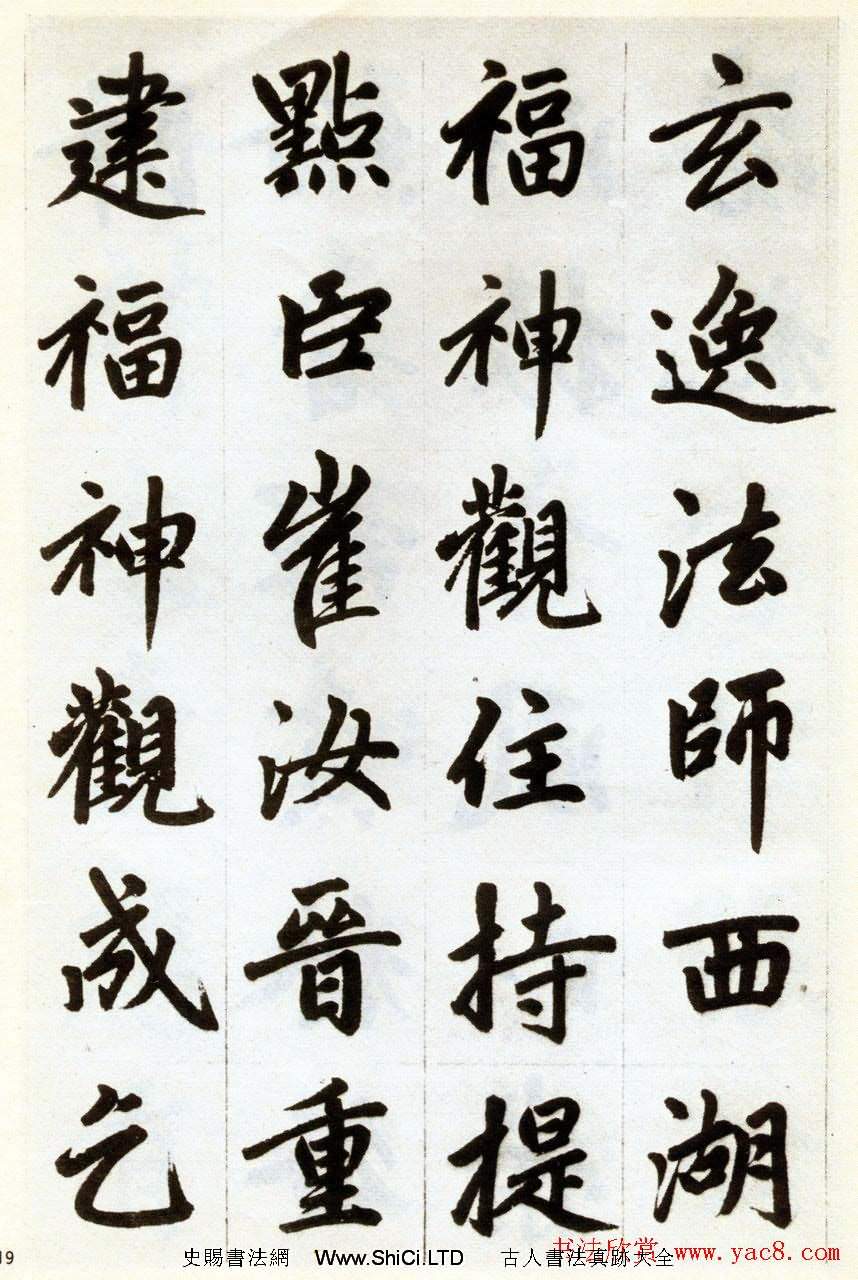 玄逸法師西湖
福神觀住持提
點臣崔汝晉重
建福神觀成乞
19
史賜書法網 Www.ShiCi.LTD 古人書法真跡大全
书法欣赏 www.yac8.com